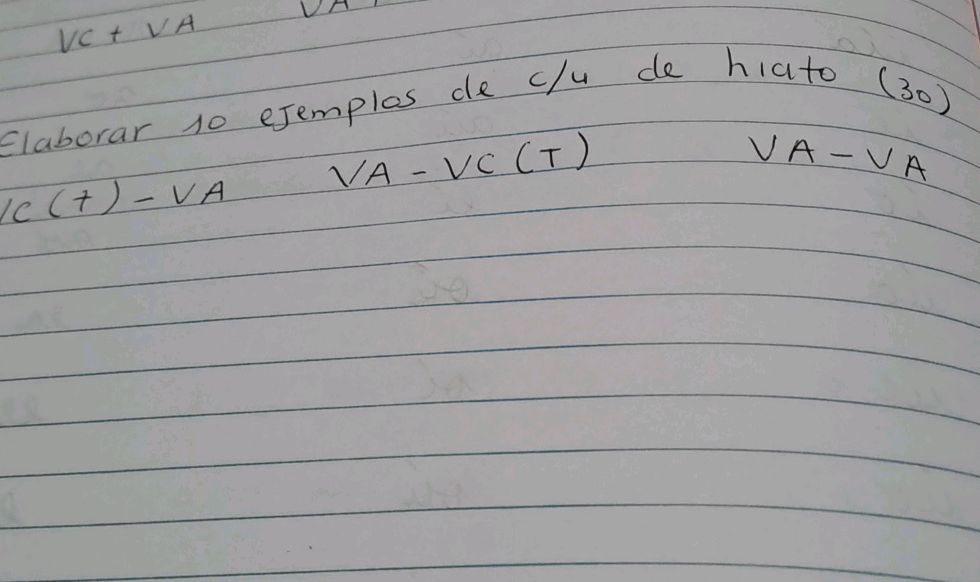 VC + VA VA
Elaborar 10 ejemplos de c/u de hiato (30)
VC (t) - VA VA - VC (T) VA - VA